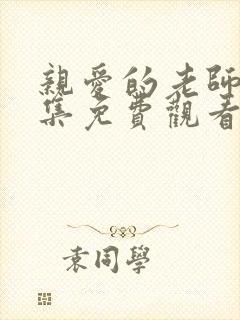 親愛的老師
集免費觀看
袁同學